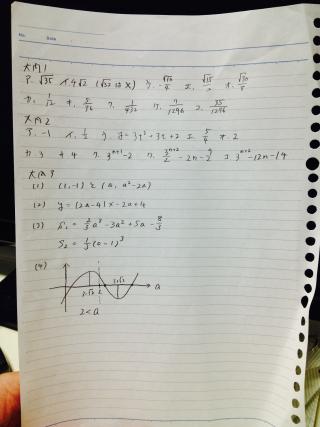 No. Date
大問1
ア. √35 イ. 4√2 (√32は×) ウ. √10/4 エ. √15/ オ. √30/8
カ. 1/12 キ. 5/96 ク. 1/432 ケ. 7/1296 コ. 35/1296
大問2
ア. -1 イ. 1/2 ウ. y=3t²+3t+2 エ. 5/4 オ. 2
カ. 3 キ. 4 ク. 3ⁿ⁺¹-2 ケ. 3ⁿ⁺²/2 -2n- 9/2 コ. 3ⁿ⁺²-12n-14
大問3
(1) (1,-1) と (a, a²-2a)
(2) y=(2a-4)x-2a+4
(3) S₁ = 2/3 a³-3a²+5a- 8/3
S₂ = 1/3 (a-1)³
(4)
2 a
2<a